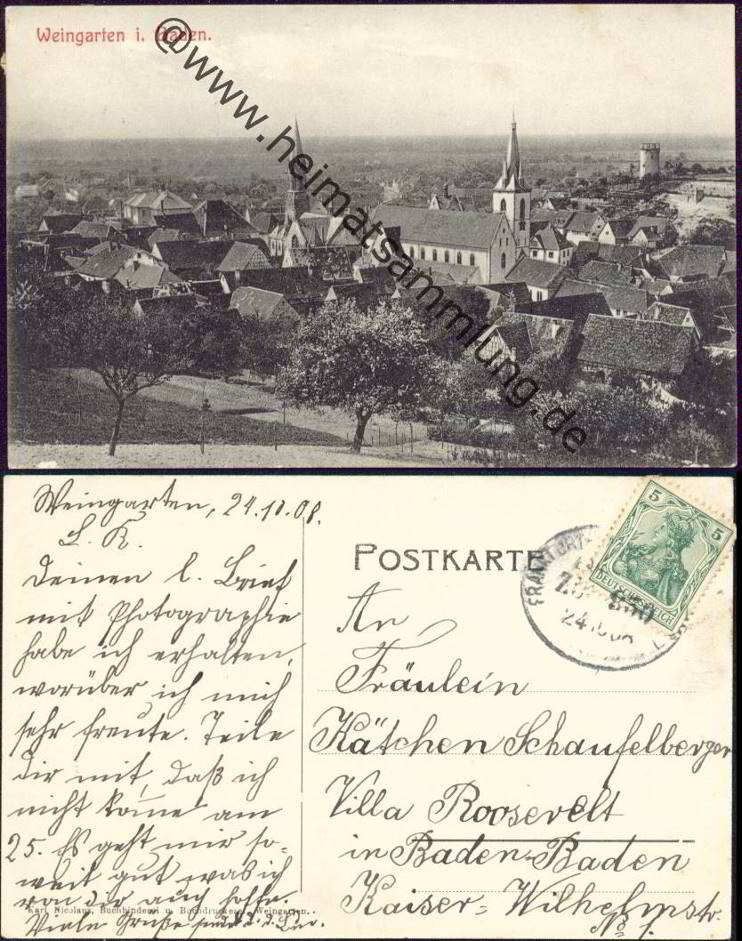 Weingarten i. Baden.
@www.heimatsammlung.de
Weingarten, 24.10.08.
L. K.
Deinen l. Brief
mit Photographie
habe ich erhalten,
worüber ich mich
sehr freute. Teile
dir mit, daß ich
nicht komme am
25. Es geht mir so-
weit gut was ich
von dir auch hoffe.
Viele Grüße
Karl Nicolaus, Buchbinderei u. Buchdruckerei, Weingarten.
POSTKARTE
5 5
DEUTSCHES REICH
FRANKFURT
ZUG
24.10.08
An
Fräulein
Kätchen Schaufelberger
Villa Roosevelt
in Baden-Baden
Kaiser-Wilhelmstr.
No 1.